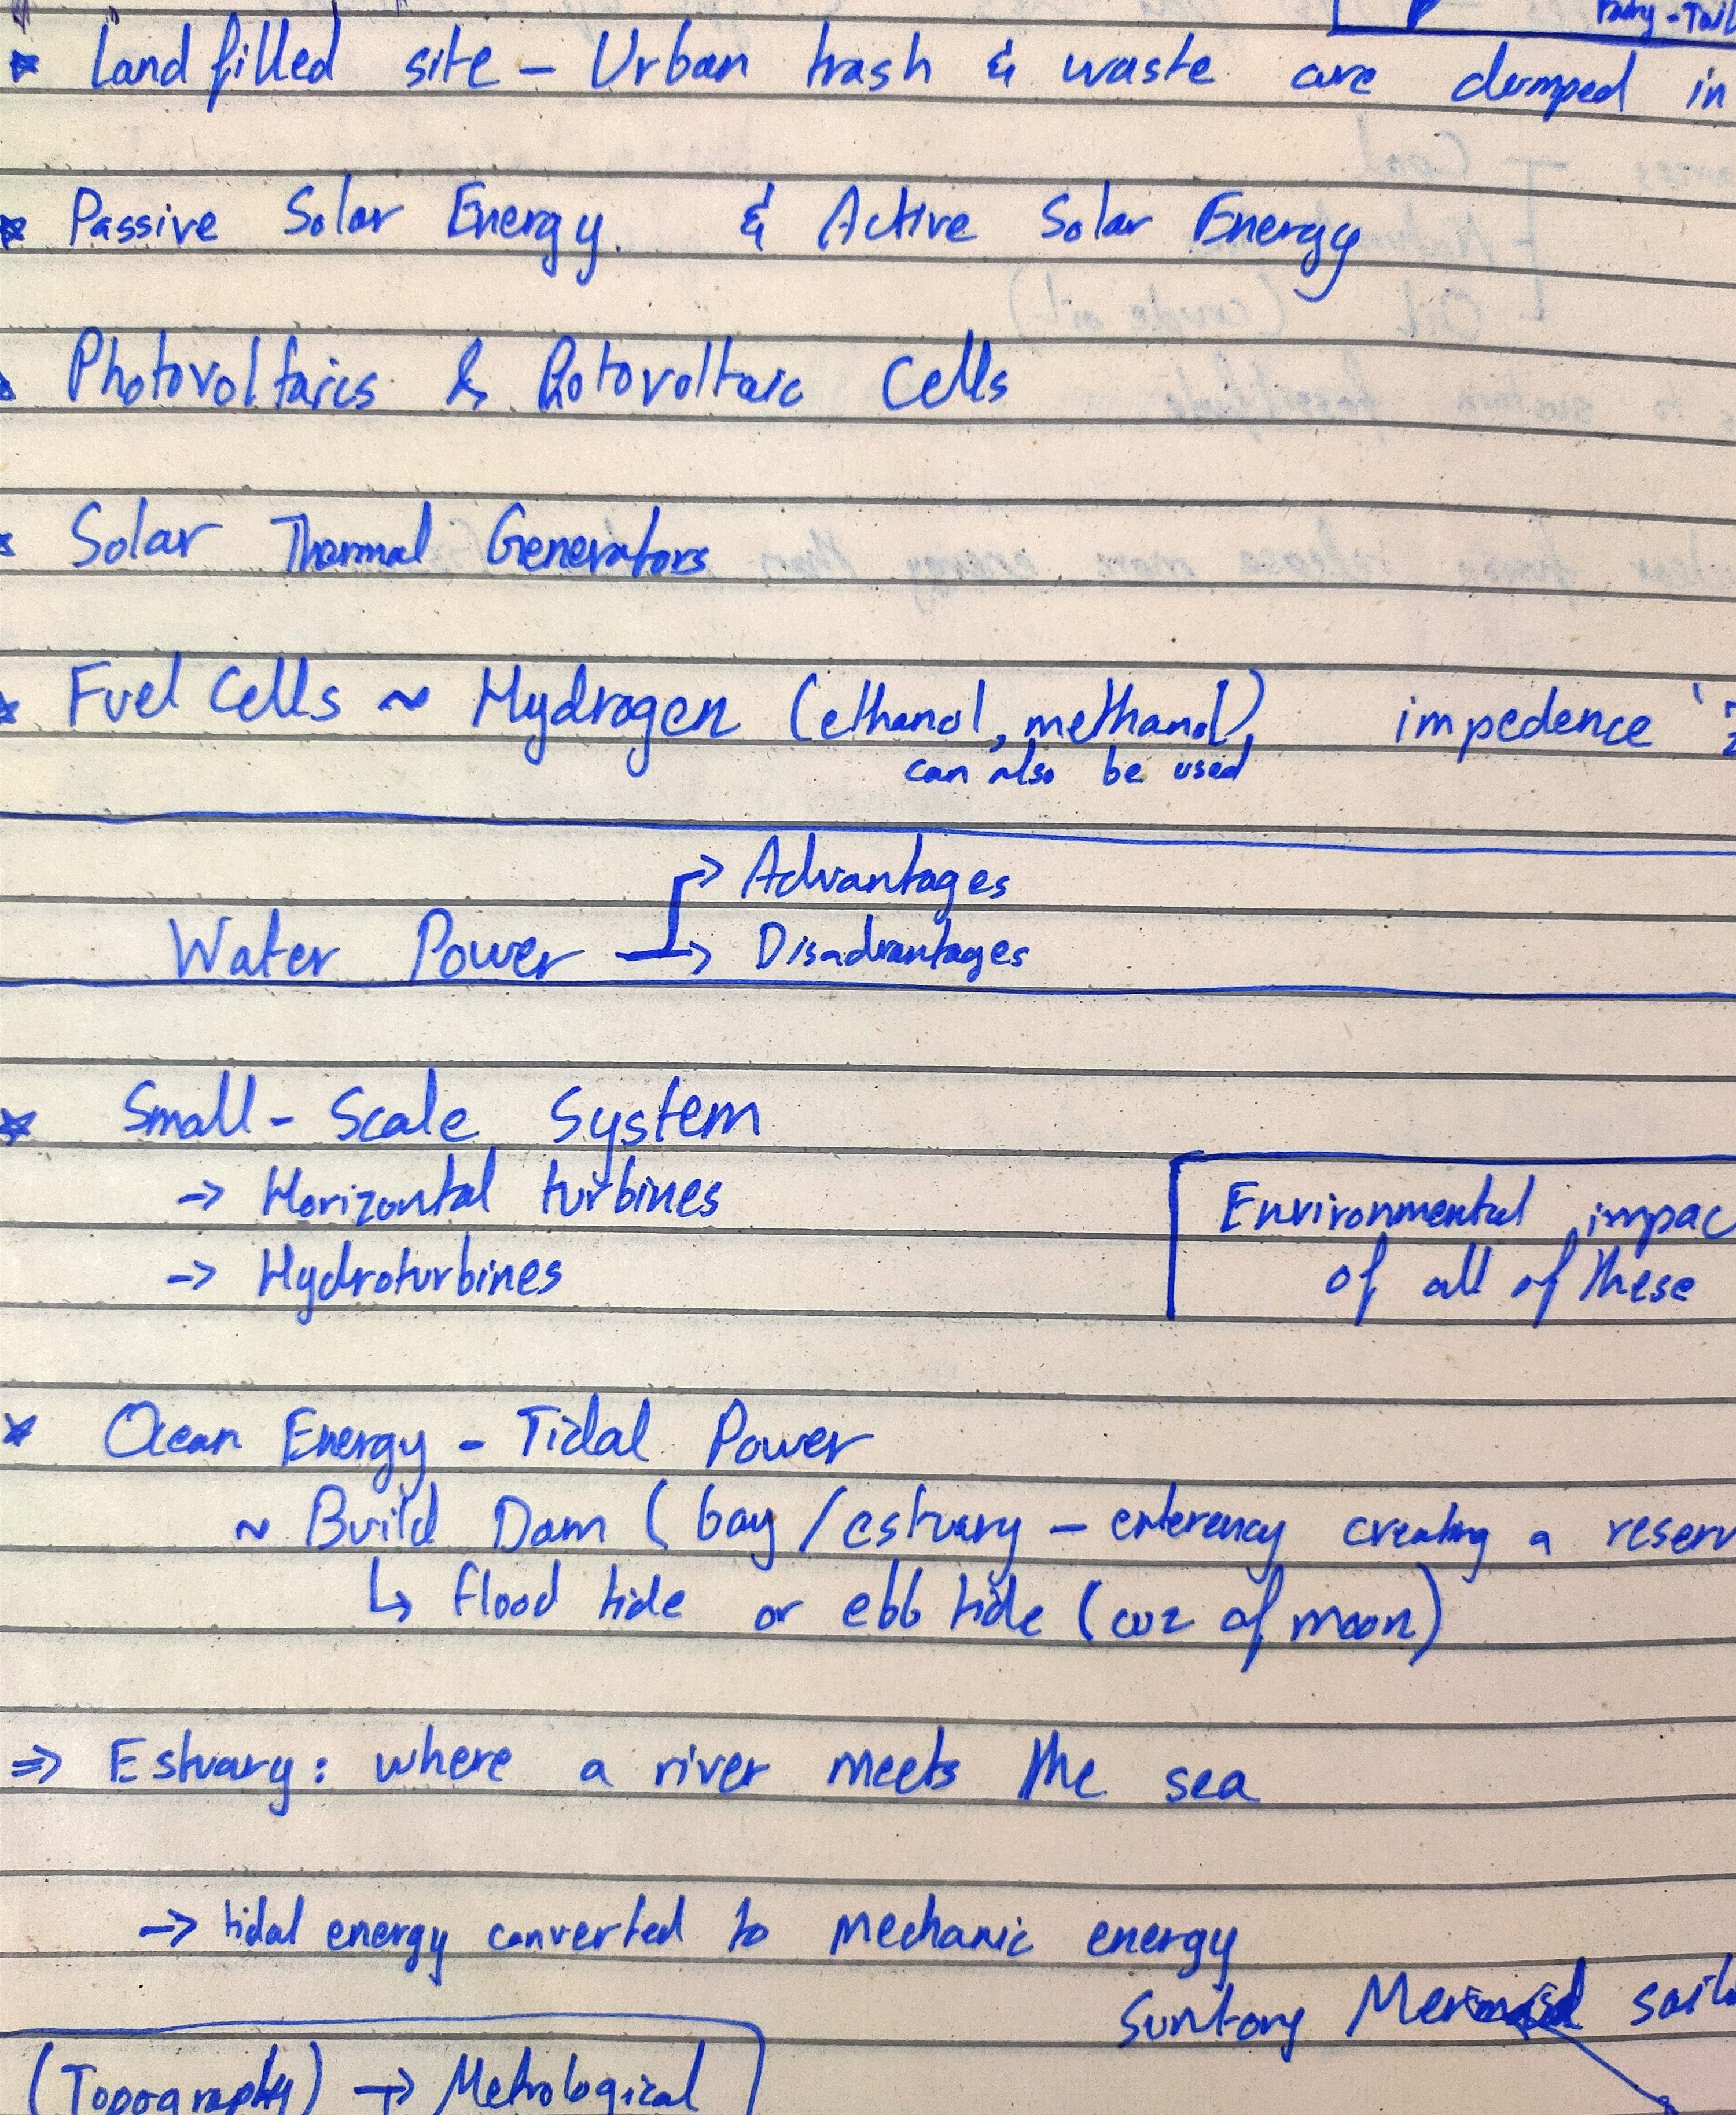 Fairy-Tail
* Landfilled site - Urban trash & waste are dumped in
* Passive Solar Energy. & Active Solar Energy
Photovoltaics & Potovoltaic Cells
* Solar Thermal Generators
* Fuel Cells ~ Hydrogen (ethanol, methanol) impedence 'Z
can also be used
→ Advantages
Water Power → Disadvantages
* Small-Scale System
→ Horizontal turbines
→ Hydroturbines
Environmental impac
of all of these
* Ocean Energy - Tidal Power
~ Build Dam (bay/estuary - enterency creating a reserv
↳ flood tide or ebb tide (cuz of moon)
⇒ Estuary: where a river meets the sea
→ tidal energy converted to mechanic energy
Suntory Mermaid sail
(Topography) → Metrological